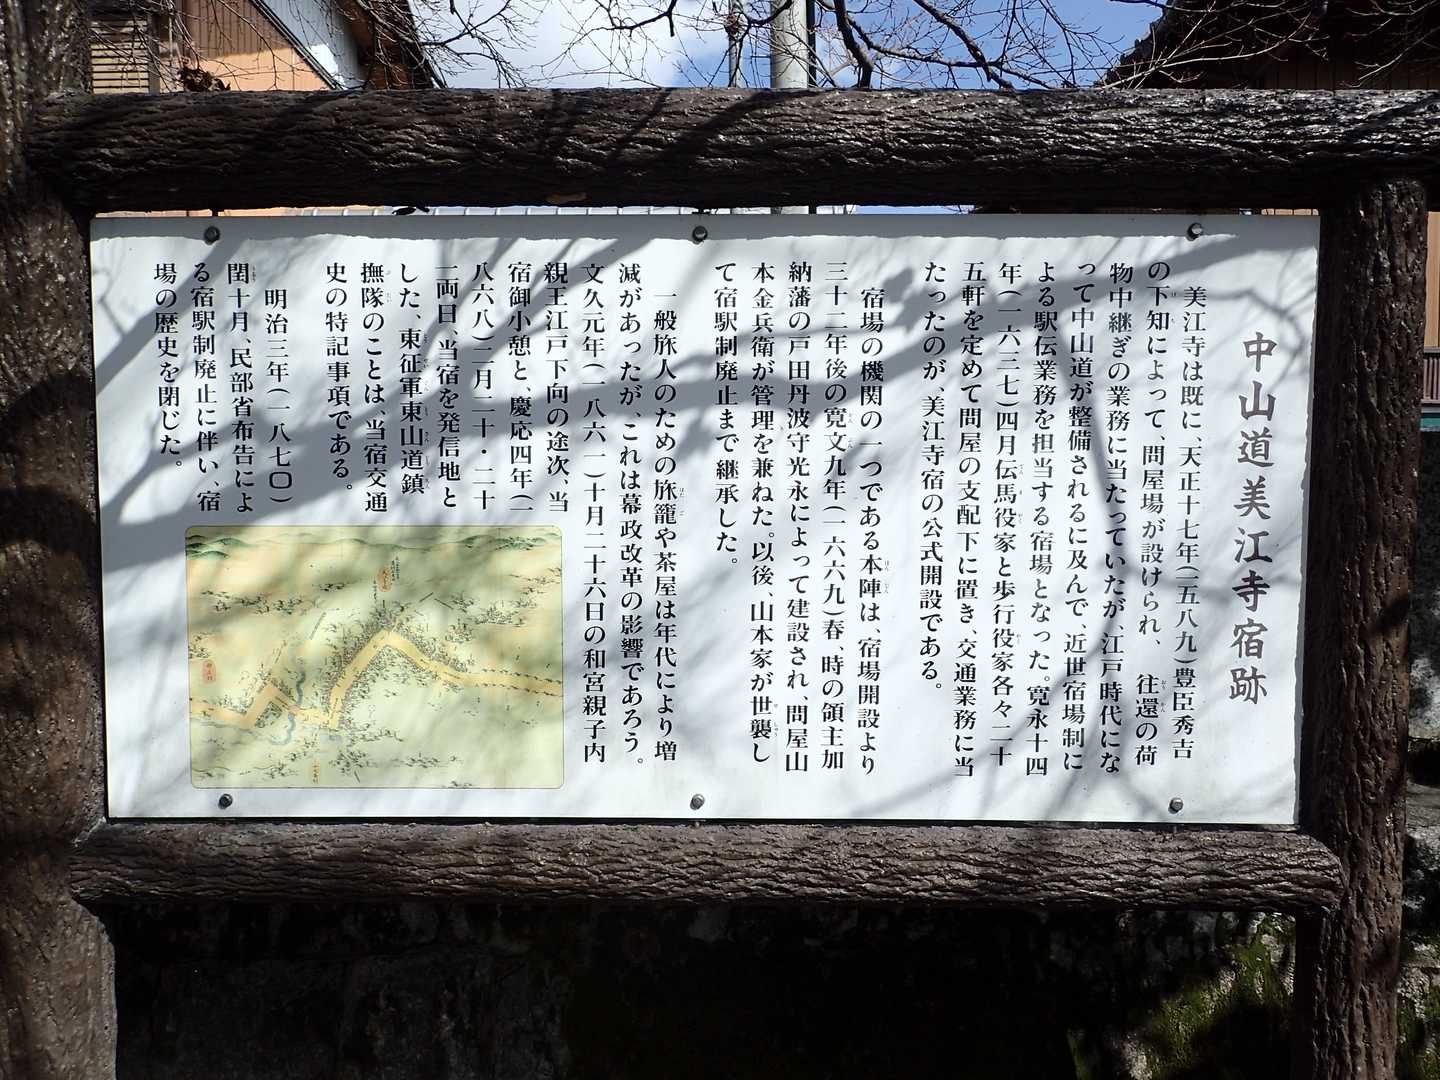 中山道美江寺宿跡
美江寺は既に、天正十七年(一五八九)豊臣秀吉
の下知によって、問屋場が設けられ、 往還の荷
物中継ぎの業務に当たっていたが、江戸時代にな
って中山道が整備されるに及んで、近世宿場制に
よる駅伝業務を担当する宿場となった。寛永十四
年(一六三七)四月伝馬役家と歩行役家各々二十
五軒を定めて問屋の支配下に置き、交通業務に当
たったのが、美江寺宿の公式開設である。
宿場の機関の一つである本陣は、宿場開設より
三十二年後の寛文九年(一六六九)春、時の領主加
納藩の戸田丹波守光永によって建設され、問屋山
本金兵衛が管理を兼ねた。以後、山本家が世襲し
て宿駅制廃止まで継承した。
一般旅人のための旅籠や茶屋は年代により増
減があったが、これは幕政改革の影響であろう。
文久元年(一八六一)十月二十六日の和宮親子内
親王江戸下向の途次、当
宿御小憩と、慶応四年(一
八六八)二月二十・二十
一両日、当宿を発信地と
した、東征軍東山道鎮
撫隊のことは、当宿交通
史の特記事項である。
明治三年(一八七〇)
閏十月、民部省布告によ
る宿駅制廃止に伴い、宿
場の歴史を閉じた。